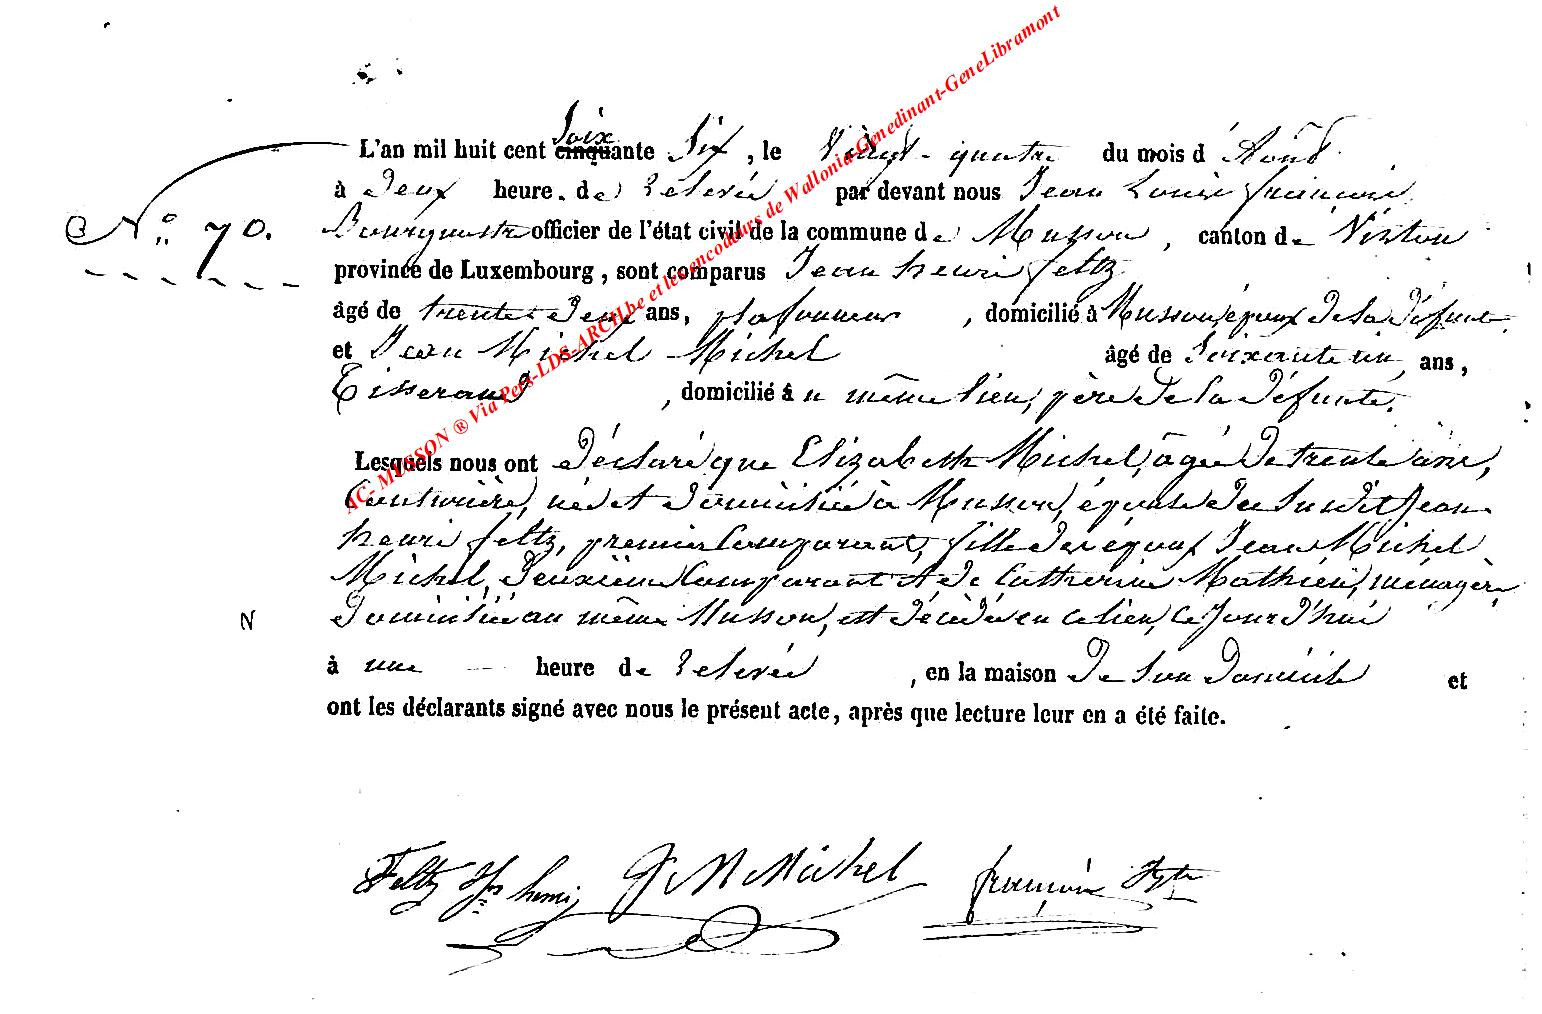 L'an mil huit cent soixante six, le vingt-quatre du mois d'Août
à deux heure. de relevée par devant nous Jean Louis françois
Bourgmestre officier de l'état civil de la commune de Musson, canton de Virton
N° 70.
province de Luxembourg, sont comparus Jean henri feltz
âgé de trente-deux ans, plafonneur, domicilié à Musson, époux de la défunte,
et Jean Michel Michel âgé de soixante un ans,
Tisserand, domicilié au même lieu, père de la défunte.
Lesquels nous ont déclaré que Elizabeth Michel, âgée de trente ans,
Couturière, née et domiciliée à Musson, épouse du susdit Jean
henri feltz, premier Comparant, fille des époux Jean Michel
Michel, deuxième Comparant et de Catherine Mathieu, ménagère,
N domiciliée au même Musson, est décédée en ce lieu, ce jourd'hui
à une heure de relevée, en la maison de son domicile et
ont les déclarants signé avec nous le présent acte, après que lecture leur en a été faite.
Feltz Jn henri J M Michel françois
AC- MUSSON ® Via Pers-LDS-ARCH.be et les encodeurs de Wallonia-Genedinant-GeneLibramont